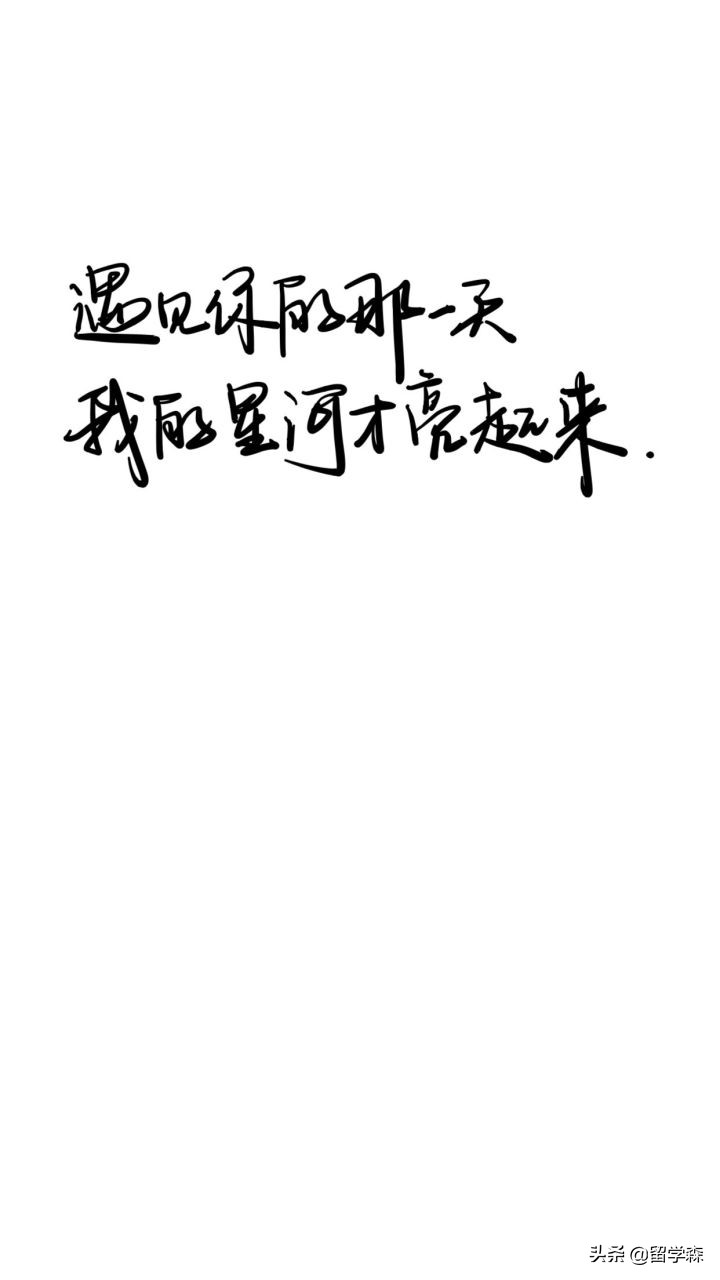 遇见你的那一天
我的星河才亮起来.
头条 @留学森